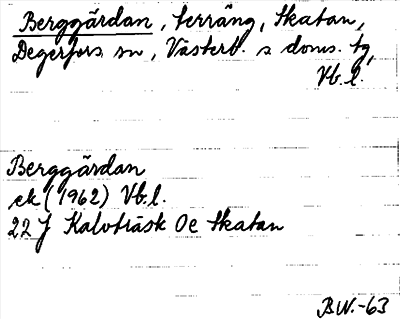 Berggärdan, terräng, Skatan,
Degerfors sn, Västerb. s doms. tg,
Vb. l.
Berggärdan
ek (1962) Vb. l.
22 J Kalvträsk 0e Skatan
B W. -63